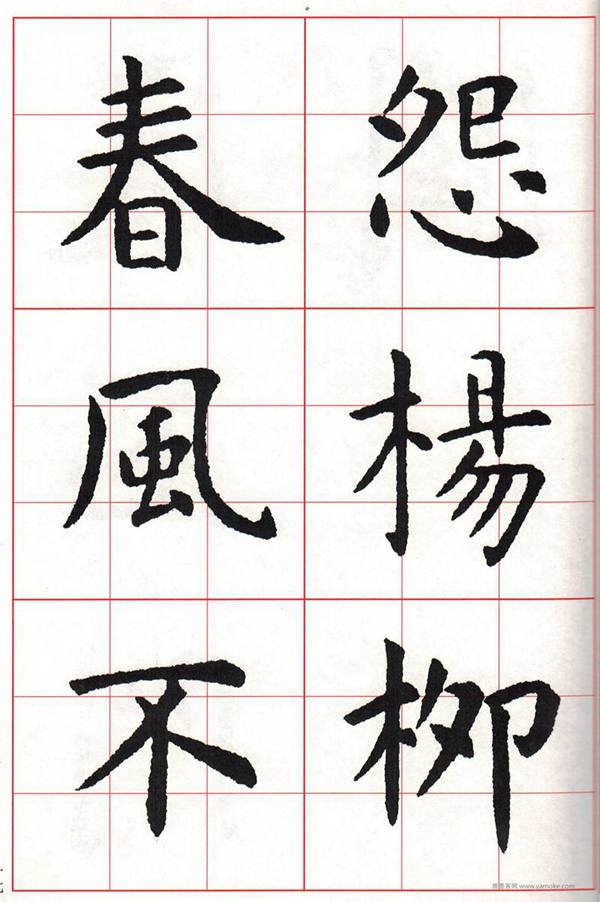 怨楊柳
春風不
雅墨客网 www.yamoke.com